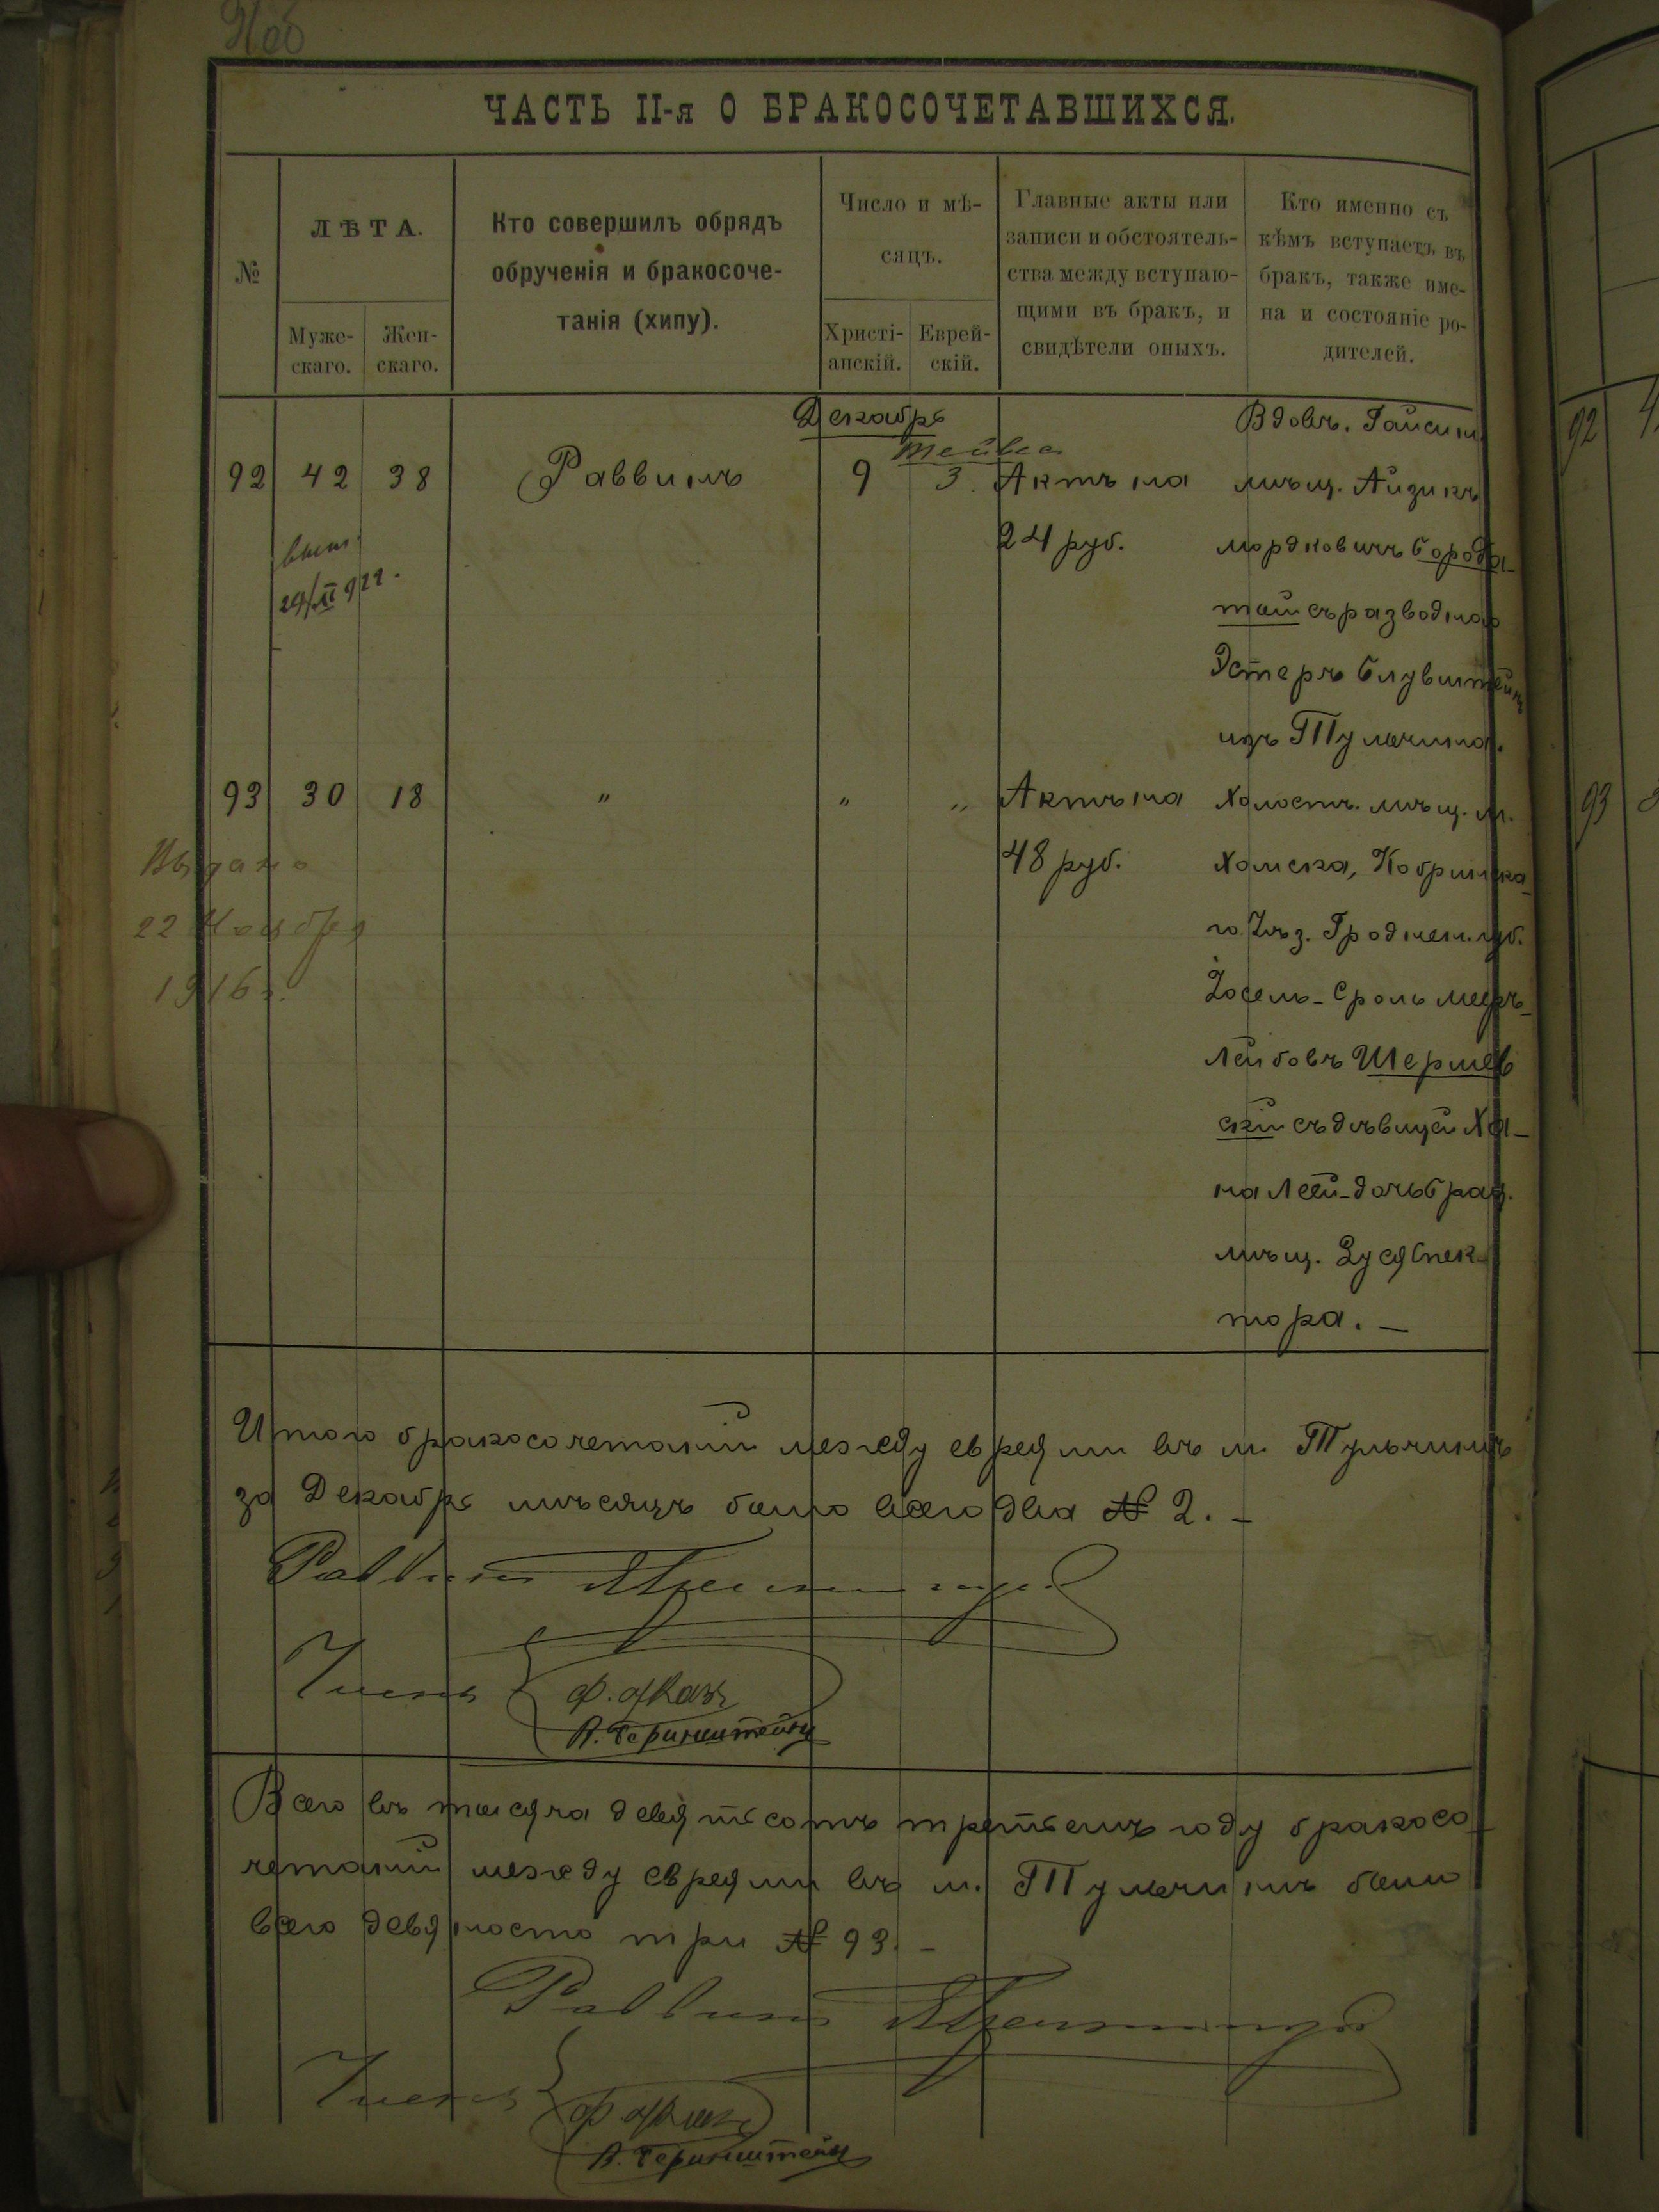 ЧАСТЬ II-я О БРАКОСОЧЕТАВШИХСЯ.
№
ЛѢТА.
Муже-
скаго.
Жен-
скаго.
Кто совершилъ обрядъ
обрученія и бракосоче-
танія (хипу).
Число и мѣ-
сяцъ.
Христі-
анскій.
Еврей-
скій.
Главные акты или
записи и обстоятель-
ства между вступаю-
щими въ бракъ, и
свидѣтели оныхъ.
Кто именно съ
кѣмъ вступаетъ въ
бракъ, также име-
на и состояніе ро-
дителей.
Декабрь
Тейвеса
92 42 38 Раввинъ 9 3. Актъ на
24 руб.
Вдовъ. Гайсин.
мѣщ. Айзикъ
Мордковичъ Борода-
тый съ разводною
Эстеръ
изъ Тульчина.
29/XI 922.
93 30 18 " " " Актъ на
48 руб.
Холостъ. мѣщ. м.
Хомска, Кобринска-
го Уѣз. Гроднен. губ.
Іосель-Сроль Мееръ-
Лейбовъ Шершев
скій съ дѣвицей Ха-
на Леей-дочь Брац.
мѣщ. Зуся Спек-
тора. —
Выдано
22 Ноября
1916 г.
Итого бракосочетаній между евреями въ м. Тульчинѣ
за Декабрь мѣсяцъ было всего два № 2. –
Раввинъ
Члены
Ф.
Всего въ тысяча девятьсотъ третьемъ году бракосо-
четаній между евреями въ м. Тульчинѣ было
всего девяносто три № 93. –
Раввинъ
Члены
Ф.
92
93